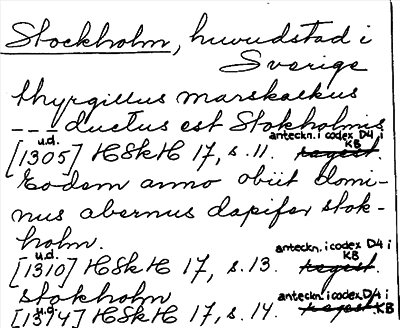 Stockholm, huvudstad i
Sverige
thyrgillus marskalkus
--- ductus est Stokholmis
u.d. anteckn. i codex D4, i KB
[1305] HSkH 17, s. 11. regest.
Eodem anno obiit domi-
nus abernus dapifer stok-
holm.
u.d. anteckn. i codex D4 i KB
[1310] HSkH 17, s. 13. regest.
stokholm
u.d. anteckn. i codex D4 i KB
[1314] HSkH 17, s. 14. regest.